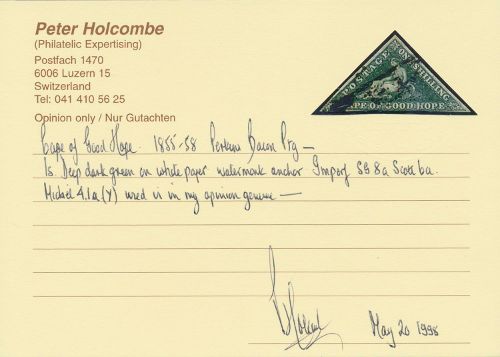 Peter Holcombe
(Philatelic Expertising)
Postfach 1470
6006 Luzern 15
Switzerland
Tel: 041 410 56 25
Opinion only / Nur Gutachten
POSTAGE
ONE SHILLING
CAPE OF GOOD HOPE
Cape of Good Hope. 1855-58 Perkins Bacon Ptg —
1s. Deep dark green on white paper watermark anchor Imperf SG 8a Scott 6a.
Michel 4.Ia.(y) used is in my opinion genuine —
May 20 1998